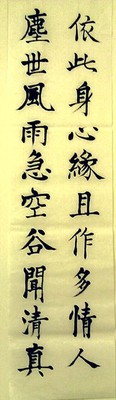 依此身心緣且作多情人
塵世風雨急空谷聞清真